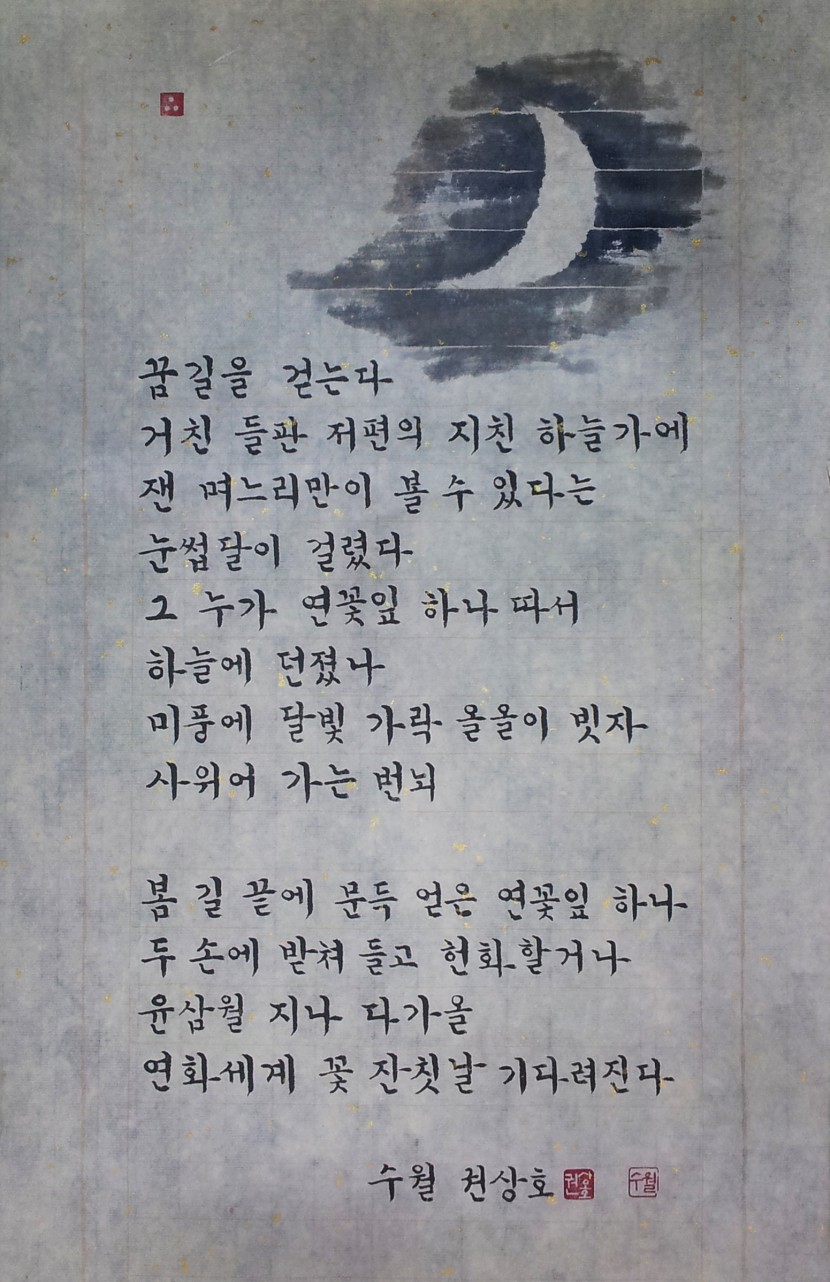 꿈길을 걷는다
거친 들판 저편의 지친 하늘가에
잰 며느리만이 볼 수 있다는
눈썹달이 걸렸다
그 누가 연꽃잎 하나 따서
하늘에 던졌나
미풍에 달빛 가락 올올이 빗자
사위어 가는 번뇌

봄 길 끝에 문득 얻은 연꽃잎 하나
두 손에 받쳐 들고 헌화할거나
윤삼월 지나 다가올
연화세계 꽃 잔칫날 기다려진다

수월 권상호 수월